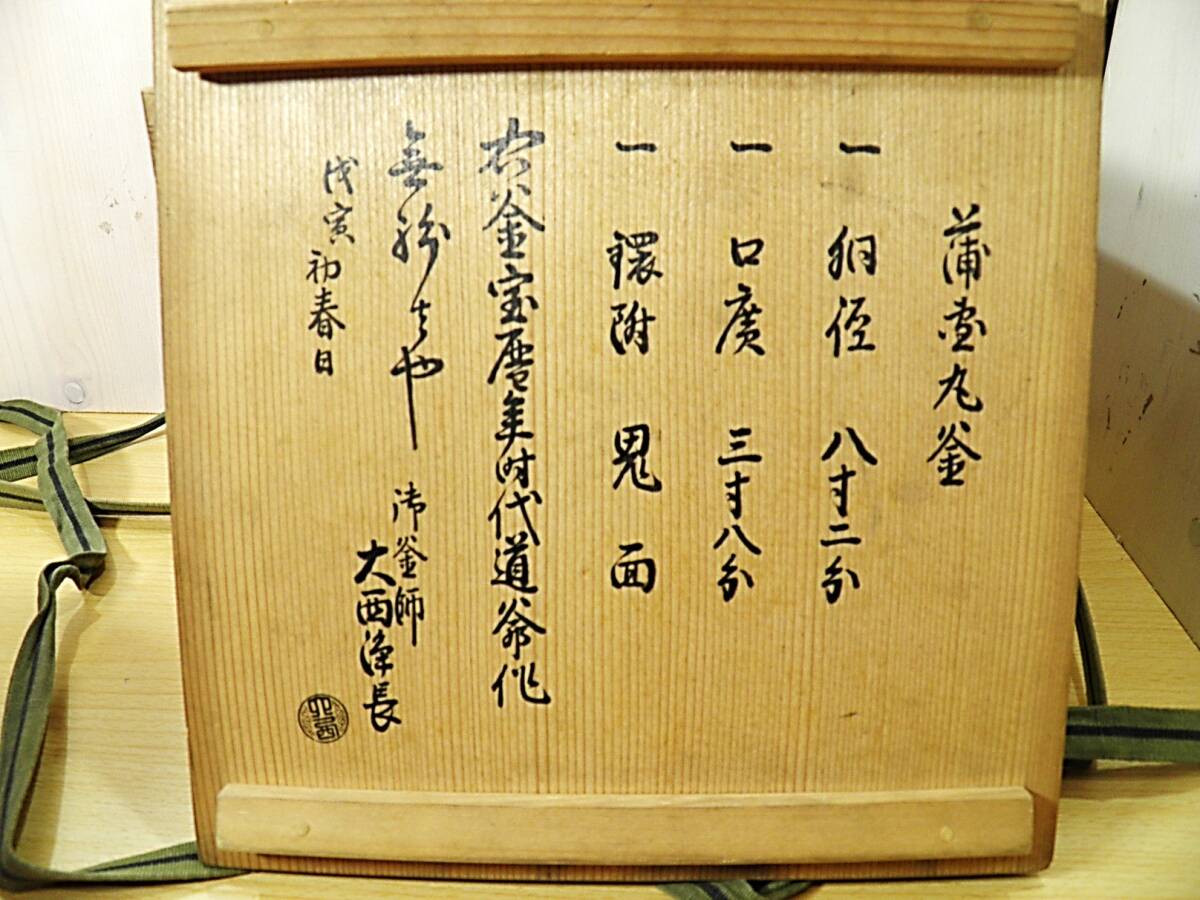 蒲壷丸釜
一 胴径 八寸二分
一 口廣 三寸八分
一 鐶附 鬼面
右釜宝暦年時代道翁作
無紛者也
戊寅初春日
御釜師
大西浄長
大西